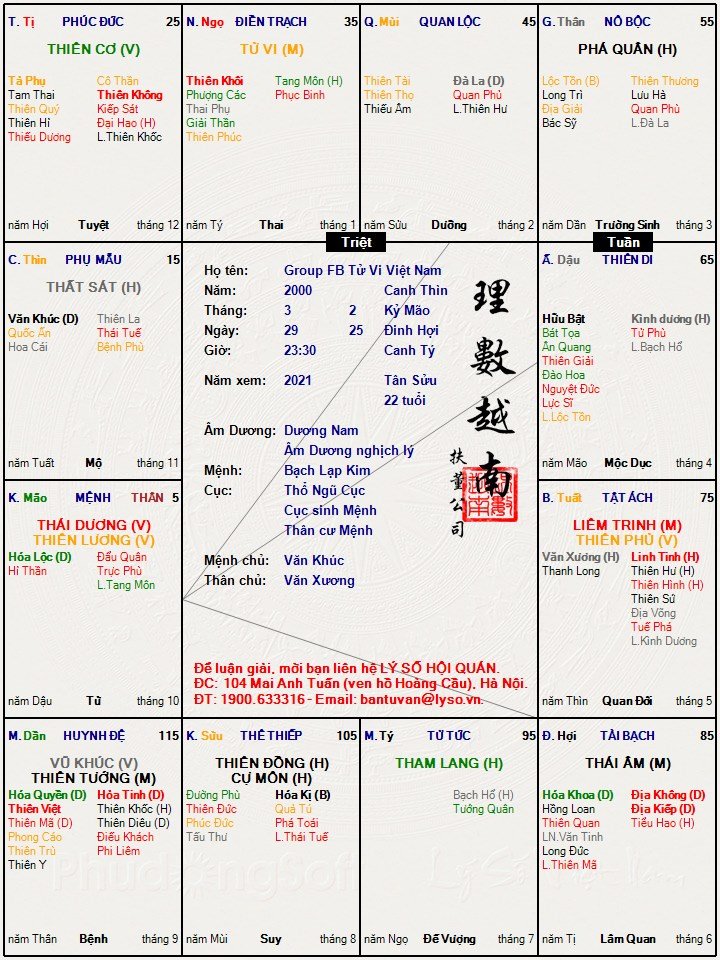 T. Tị PHÚC ĐỨC 25
THIÊN CƠ (V)
Tả Phụ Cô Thần
Tam Thai Thiên Không
Thiên Quý Kiếp Sát
Thiên Hỉ Đại Hao (H)
Thiếu Dương L.Thiên Khốc
năm Hợi Tuyệt tháng 12
N. Ngọ ĐIỀN TRẠCH 35
TỬ VI (M)
Thiên Khôi Tang Môn (H)
Phượng Các Phục Binh
Thai Phụ
Giải Thần
Thiên Phúc
năm Tý Thai tháng 1
Q. Mùi QUAN LỘC 45
Thiên Tài Đà La (D)
Thiên Thọ Quan Phủ
Thiếu Âm L.Thiên Hư
năm Sửu Dưỡng tháng 2
G. Thân NÔ BỘC 55
PHÁ QUÂN (H)
Lộc Tồn (B) Thiên Thương
Long Trì Lưu Hà
Địa Giải Quan Phù
Bác Sỹ L.Đà La
năm Dần Trường Sinh tháng 3
Triệt
Tuần
C. Thìn PHỤ MẪU 15
THẤT SÁT (H)
Văn Khúc (D) Thiên La
Quốc Ấn Thái Tuế
Hoa Cái Bệnh Phù
năm Tuất Mộ tháng 11
Họ tên: Group FB Tử Vi Việt Nam
Năm: 2000 Canh Thìn
Tháng: 3 2 Kỷ Mão
Ngày: 29 25 Đinh Hợi
Giờ: 23:30 Canh Tý
Năm xem: 2021 Tân Sửu
22 tuổi
Âm Dương: Dương Nam
Âm Dương nghịch lý
Mệnh: Bạch Lạp Kim
Cục: Thổ Ngũ Cục
Cục sinh Mệnh
Thân cư Mệnh
Mệnh chủ: Văn Khúc
Thân chủ: Văn Xương
理數越南
扶董公司
Để luận giải, mời bạn liên hệ LÝ SỐ HỘI QUÁN.
ĐC: 104 Mai Anh Tuấn (ven hồ Hoàng Cầu), Hà Nội.
ĐT: 1900.633316 - Email: bantuvan@lyso.vn.
Ấ. Dậu THIÊN DI 65
Hữu Bật Kình dương (H)
Bát Tọa Tử Phù
Ân Quang L.Bạch Hổ
Thiên Giải
Đào Hoa
Nguyệt Đức
Lực Sĩ
L.Lộc Tồn
năm Mão Mộc Dục tháng 4
K. Mão MỆNH THÂN 5
THÁI DƯƠNG (V)
THIÊN LƯƠNG (V)
Hóa Lộc (D) Đẩu Quân
Hỉ Thần Trực Phù
L.Tang Môn
năm Dậu Tử tháng 10
B. Tuất TẬT ÁCH 75
LIÊM TRINH (M)
THIÊN PHỦ (V)
Văn Xương (H) Linh Tinh (H)
Thanh Long Thiên Hư (H)
Thiên Hình (H)
Thiên Sứ
Địa Võng
Tuế Phá
L.Kình Dương
năm Thìn Quan Đới tháng 5
M. Dần HUYNH ĐỆ 115
VŨ KHÚC (V)
THIÊN TƯỚNG (M)
Hóa Quyền (D) Hỏa Tinh (D)
Thiên Việt Thiên Khốc (H)
Thiên Mã (D) Thiên Diêu (D)
Phong Cáo Điếu Khách
Thiên Trù Phi Liêm
Thiên Y
năm Thân Bệnh tháng 9
K. Sửu THÊ THIẾP 105
THIÊN ĐỒNG (H)
CỰ MÔN (H)
Đường Phù Hóa Kị (B)
Thiên Đức Quả Tú
Phúc Đức Phá Toái
Tấu Thư L.Thái Tuế
năm Mùi Suy tháng 8
M. Tý TỬ TỨC 95
THAM LANG (H)
Bạch Hổ (H)
Tướng Quân
năm Ngọ Đế Vượng tháng 7
Đ. Hợi TÀI BẠCH 85
THÁI ÂM (M)
Hóa Khoa (D) Địa Không (D)
Hồng Loan Địa Kiếp (D)
Thiên Quan Tiểu Hao (H)
LN.Văn Tinh
Long Đức
L.Thiên Mã
năm Tị Lâm Quan tháng 6